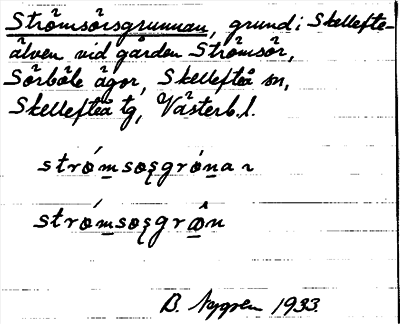 Strömsörsgrunnan, grund i Skellefte-
älven vid gården Strömsör,
Sörböle ägor, Skellefteå sn,
Skellefteå tg, Västerb. l.
strǿm̲sœʂgrǿn̲aɿ
strǿm̲sœʂgrœ̲̂n
B. Nygren 1933.